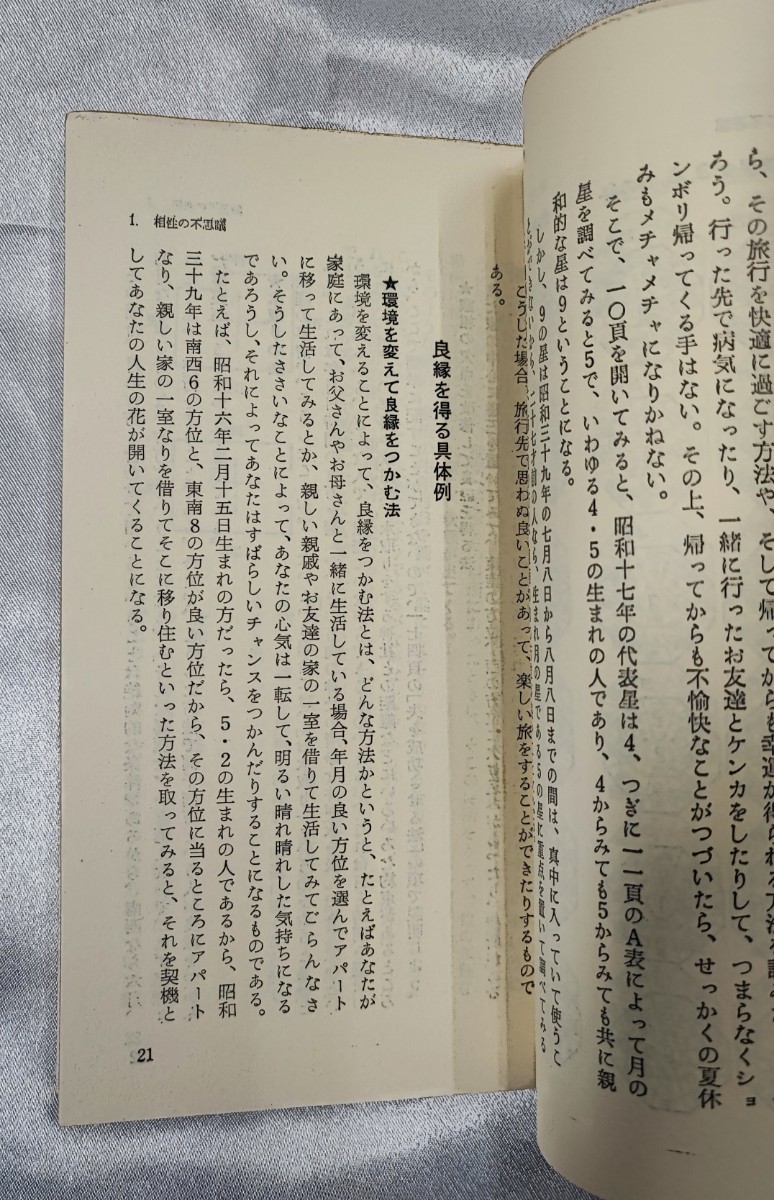 ら、その旅行を快適に過ごす方法や、そして帰ってからも幸運が得られる方法を
ろう。行った先で病気になったり、一緒に行ったお友達とケンカをしたりして、つまらなくショ
ンボリ帰ってくる手はない。その上、帰ってからも不愉快なことがつづいたら、せっかくの夏休
みもメチャメチャになりかねない。
そこで、一〇頁を開いてみると、昭和十七年の代表星は4、つぎに一一頁のA表によって月の
星を調べてみると5で、いわゆる4・5の生まれの人であり、4からみても5からみても共に親
和的な星は9ということになる。
しかし、9の星は昭和三十九年の七月八日から八月八日までの間は、真中に入っていて使うこ
生まれ月の星である5の星に重点を置いて調べてみる
こうした場合、旅行先で思わぬ良いことがあって、楽しい旅をすることができたりするもので
ある。
良縁を得る具体例
★環境を変えて良縁をつかむ法
環境を変えることによって、良縁をつかむ法とは、どんな方法かというと、たとえばあなたが
家庭にあって、お父さんやお母さんと一緒に生活している場合、年月の良い方位を選んでアパート
に移って生活してみるとか、親しい親戚やお友達の家の一室を借りて生活してみてごらんなさ
い。そうしたささいなことによって、あなたの心気は一転して、明るい晴れ晴れした気持ちになる
であろうし、それによってあなたはすばらしいチャンスをつかんだりすることになるものである。
たとえば、昭和十六年二月十五日生まれの方だったら、5・2の生まれの人であるから、昭和
三十九年は南西6の方位と、東南8の方位が良い方位だから、その方位に当るところにアパート
なり、親しい家の一室なりを借りてそこに移り住むといった方法を取ってみると、それを契機と
してあなたの人生の花が開いてくることになる。
1. 相性の不思議
21